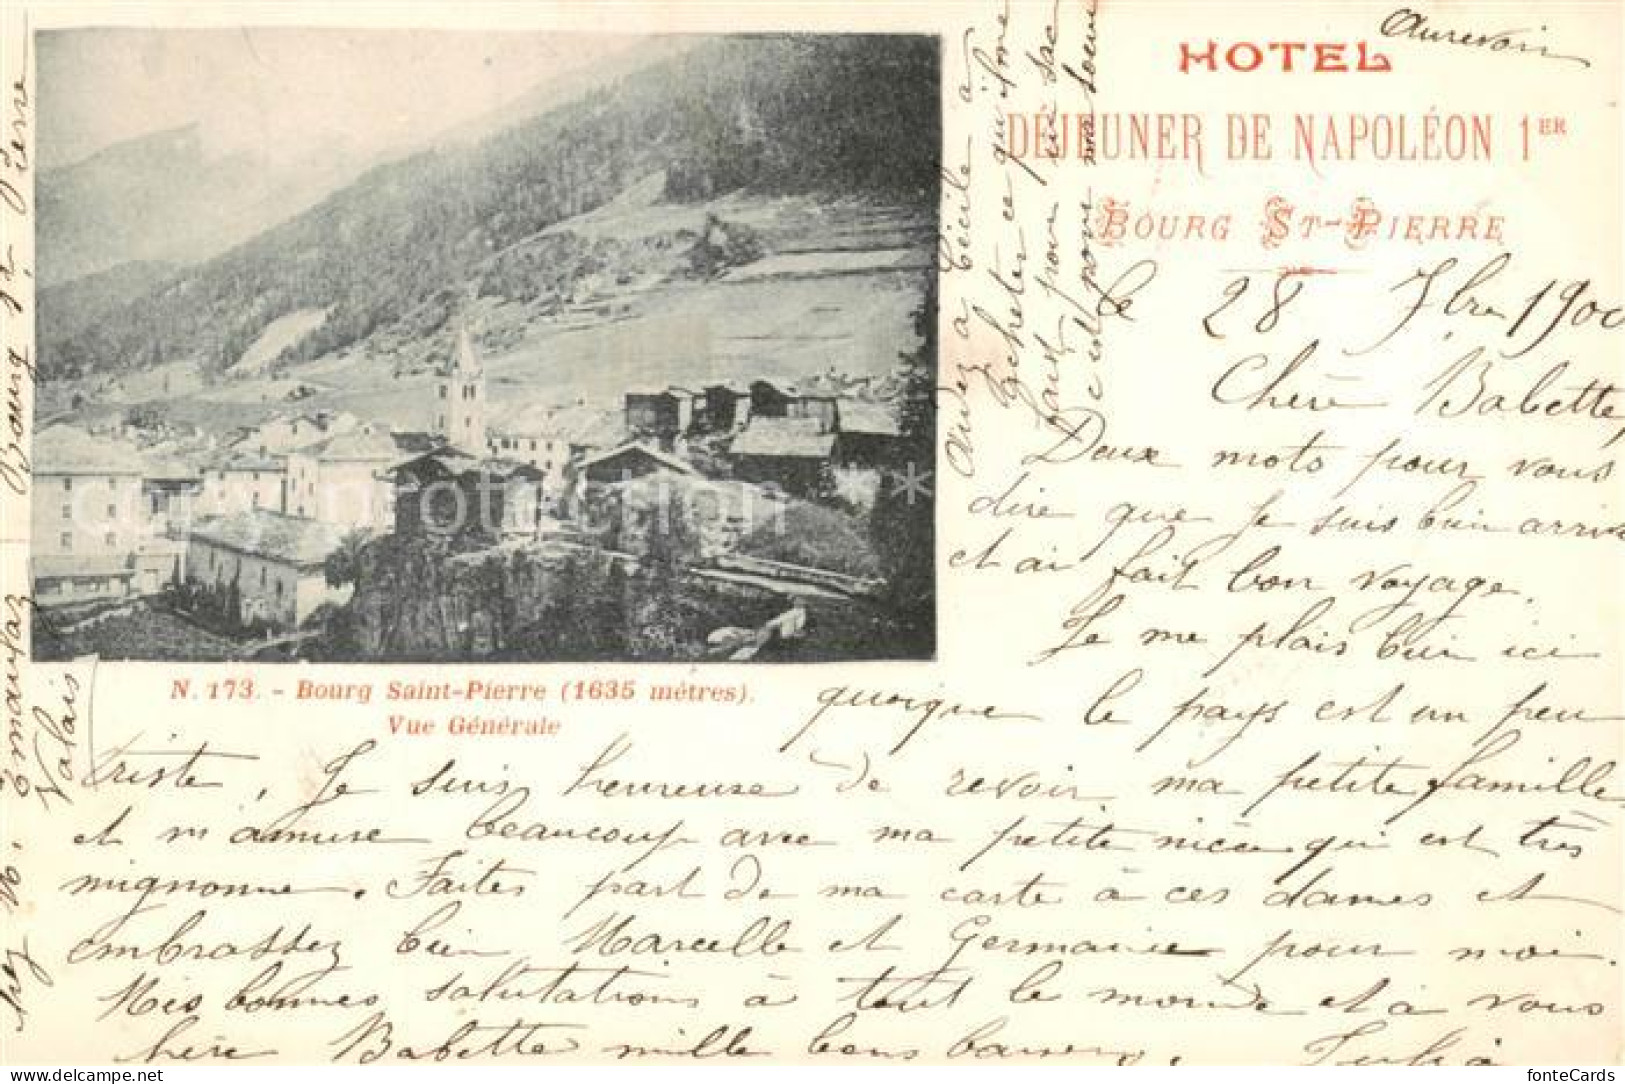 Aurevoir
HOTEL
DÉJEUNER DE NAPOLÉON 1ER
BOURG ST-PIERRE
le 28 7bre 1900
Chère Babette,
Deux mots pour vous
dire que je suis bien arrivé
et ai fait bon voyage.
Je me plais bien ici
quoique le pays est un peu
triste, Je suis heureuse de revoir ma petite famille
et m'amuse beaucoup avec ma petite nièce qui est très
mignonne. Faites part de ma carte à ces dames et
embrassez bien Marcelle et Germaine pour moi.
Mes bonnes salutations à tout le monde et à vous
chère Babette mille bons baisers.
N. 173. - Bourg Saint-Pierre (1635 mètres).
Vue Générale
chez M. Bourg St Pierre
Valais
Aidez à Cécile à
acheter ce qu'il me
faut pour un sac
c'est pour ma soeur
dary protection *
fonteCards